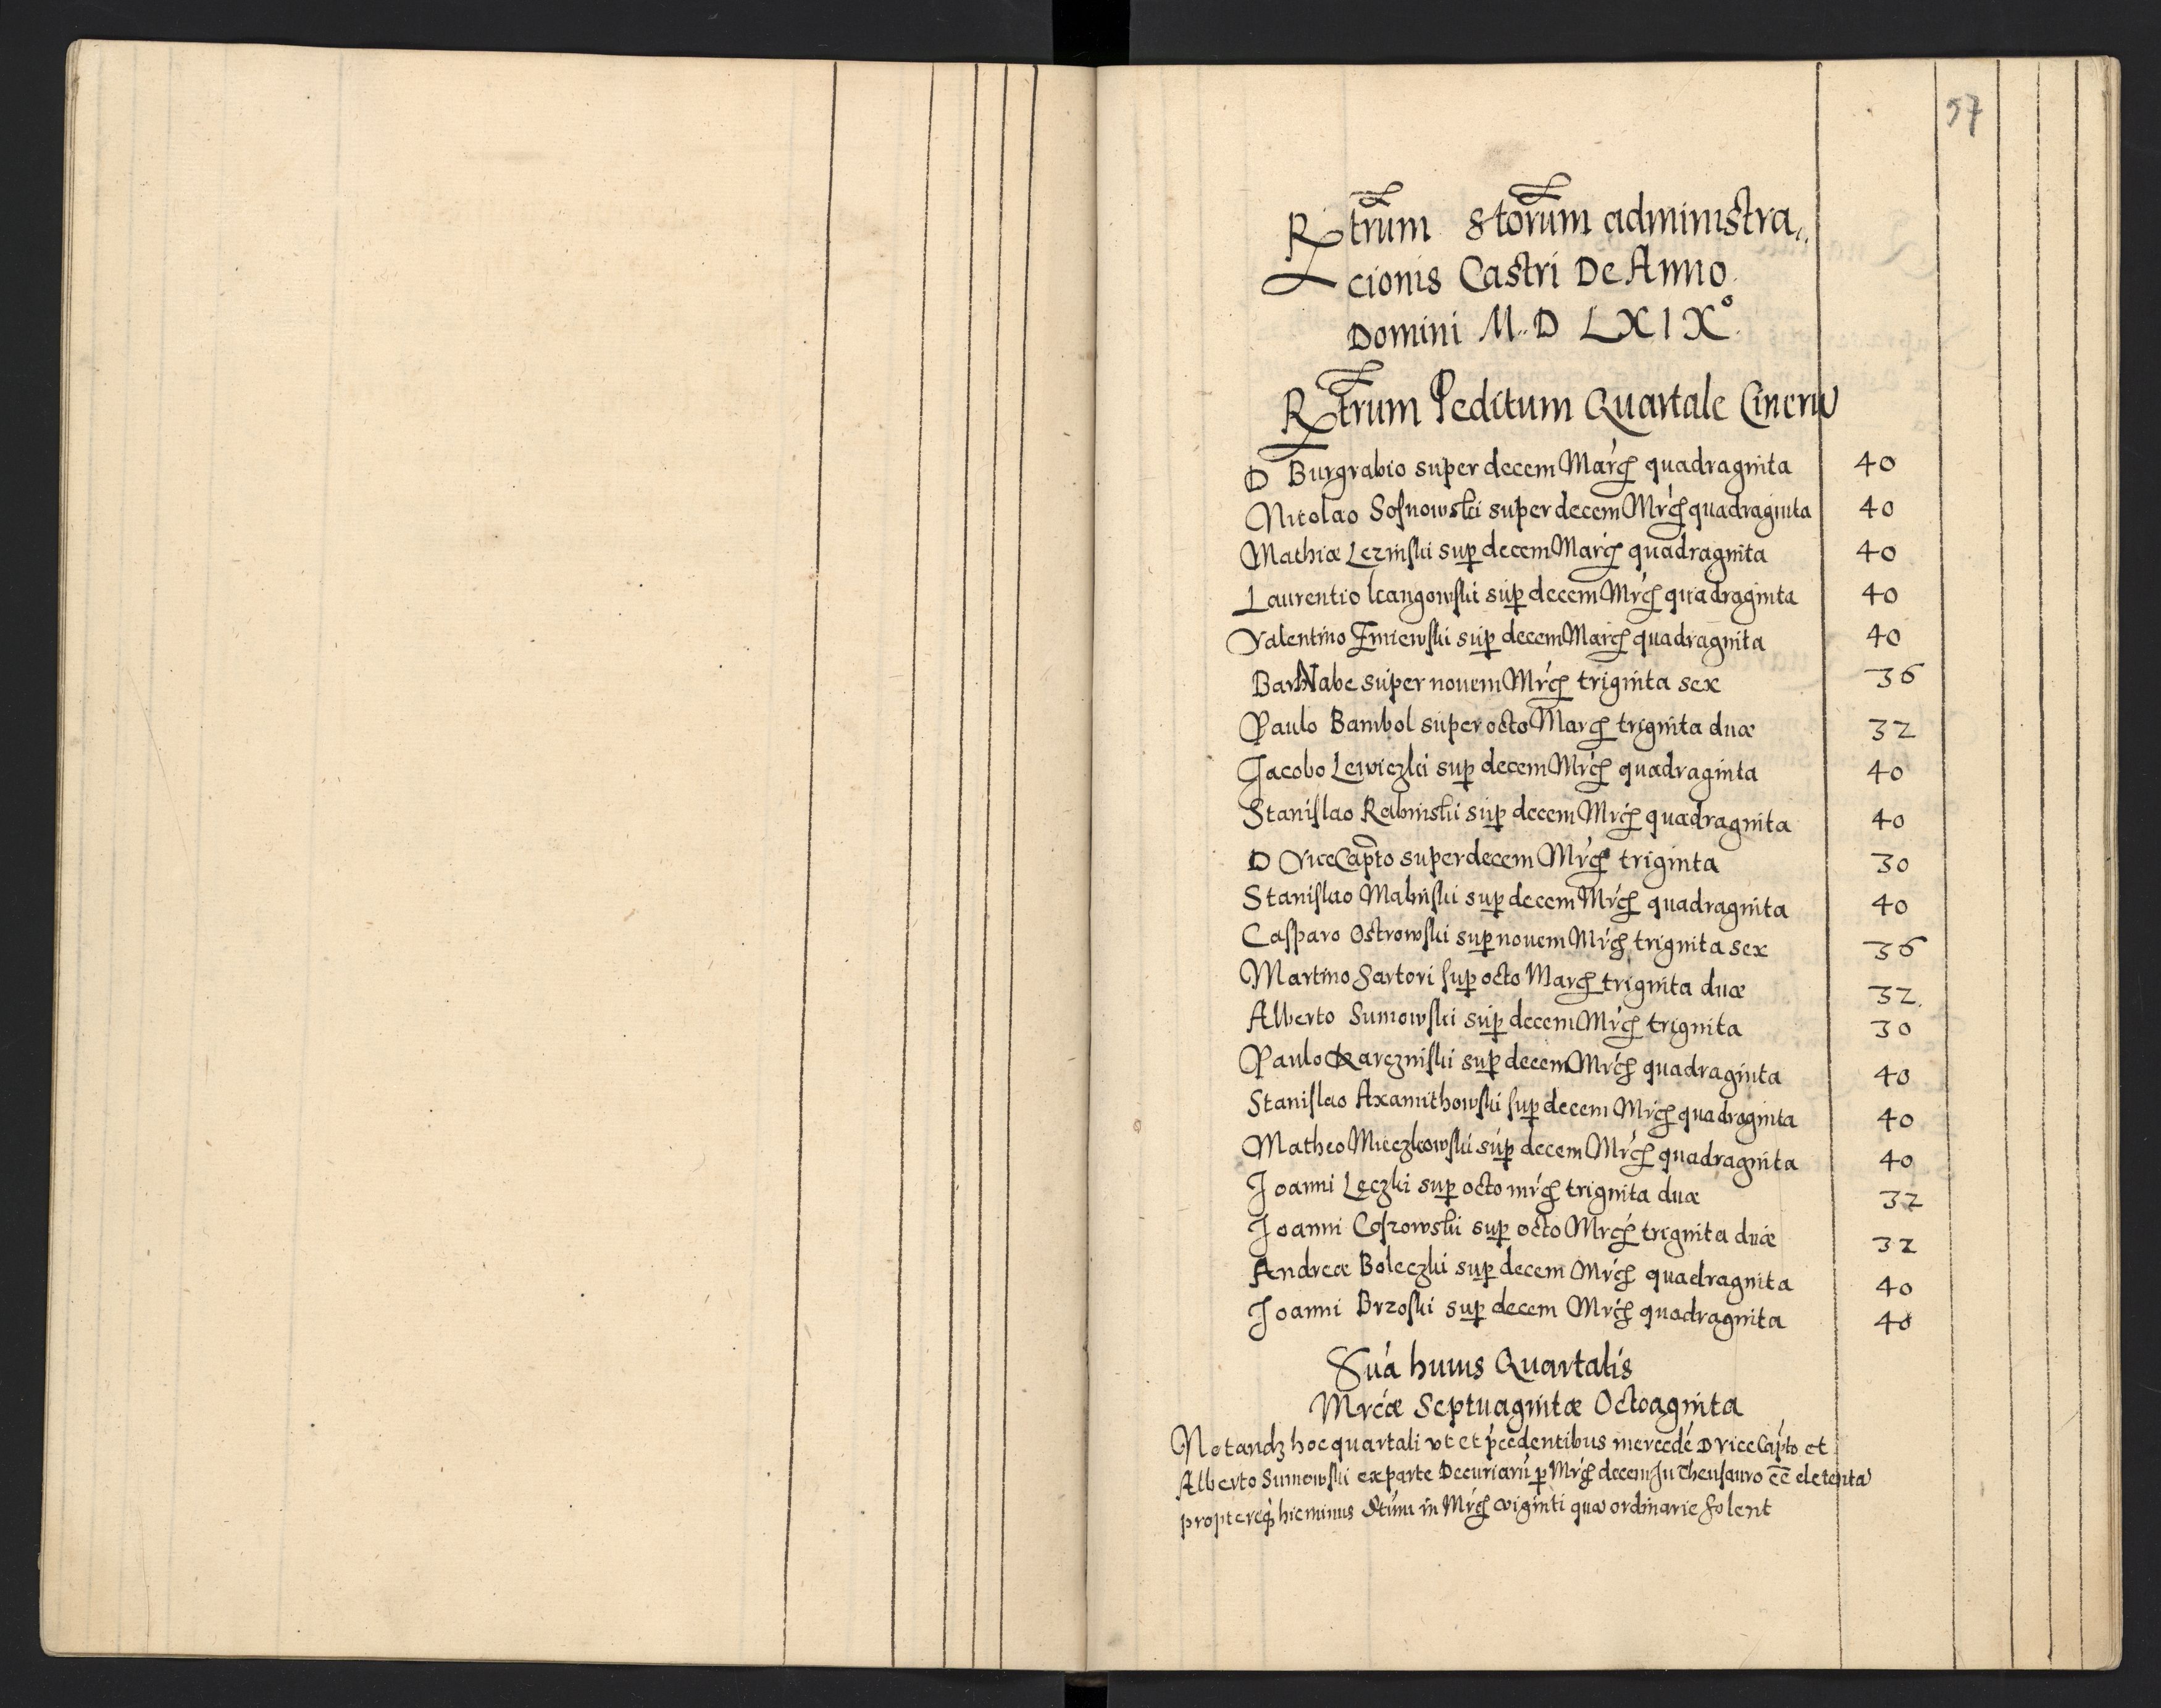 57
Rtrum Storum administra,,
cionis Castri De Anno
Domini M..D LXIX°.
Rtrum Peditum Quartale Cineru
D Burgrabio super decem March quadraginta 40
Nicolao Sosnowski super decem Mrch quadraginta 40
Mathiæ Lezinski sup decem March quadraginta 40
Laurentio kangowski sup decem Mrch quadraginta 40
Valentino Zmiewski sup decem March quadraginta 40
Barnabe super nouem Mrch triginta sex 36
Paulo Bambol super octo March triginta duæ 32
Jacobo Lewiczki sup decem Mrch quadraginta 40
Stanislao Rabinski sup decem Mrch quadraginta 40
D ViceCapto super decem Mrch triginta 30
Stanislao Malinski sup decem Mrch quadraginta 40
Casparo Ostrowski sup nouem Mrch triginta sex 36
Martino Sartori sup octo March triginta duæ 32.
Alberto Sumowski sup decem Mrch triginta 30
Paulo sup decem Mrch quadraginta 40
Stanislao Axamithowski sup decem Mrch quadraginta 40
Matheo Mieczkowski sup decem Mrch quadraginta 40
Joanni Leczki sup octo mrch triginta duæ 32
Joanni sup octo Mrch triginta duæ 32
Andreæ Boleczki sup decem Mrch quadraginta 40
Joanni Brzoski sup decem Mrch quadraginta 40
Suā huius Quartalis
Mrcæ Septuagintæ Octoaginta
Notandz hoc quartali vt et pcedentibus mercedē D viceCapto et
Alberto Sumowski ex parte Decuriarū p Mrch decem Jn Thesauro eē detenta
propterea hic minus Stum in Mrch viginti quā ordinarie solent